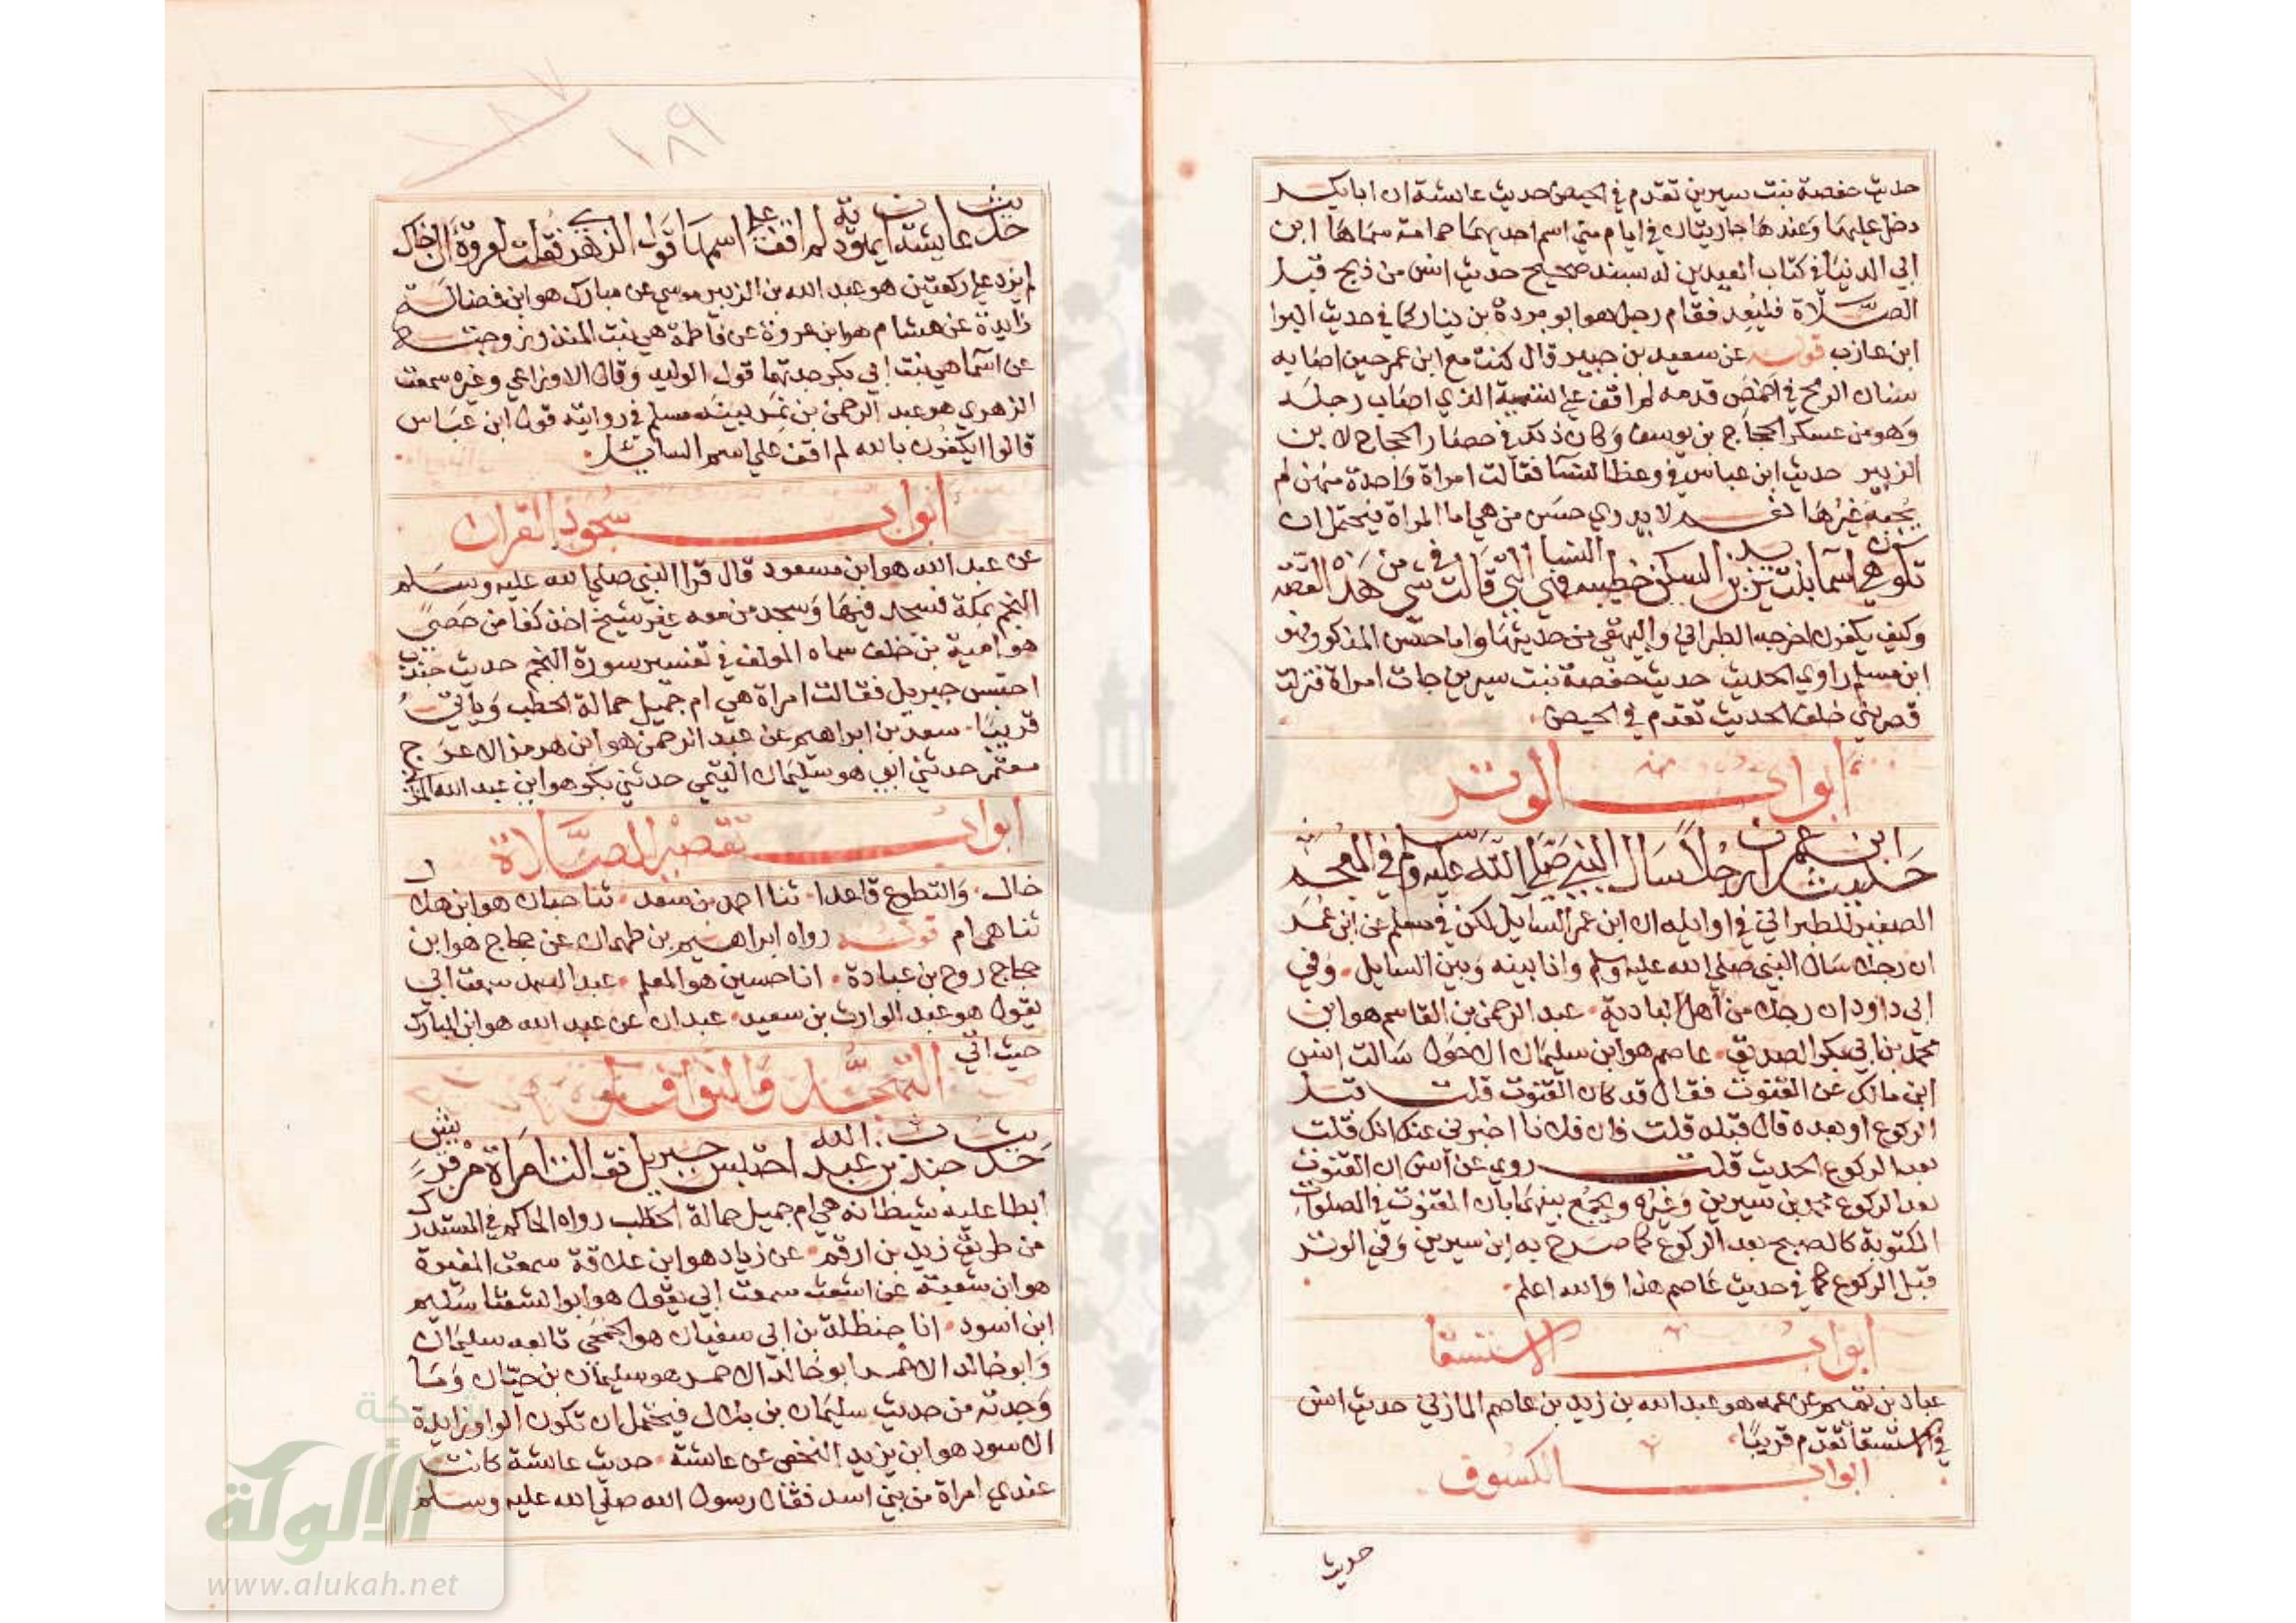 حديث حفصة بنت سيرين تقدم في الحيض حديث عائشة ان ابا بكر
دخل عليها وعندها جاريتان في ايام منى اسم احديهما حمامة سماها ابن
ابي الدنيا في كتاب العيدين له بسند صحيح حديث انس من ذبح قبل
الصلاة فليعد فقام رجل هو ابو بردة بن نيار كما في حديث البرا
ابن عازب قوله عن سعيد بن جبير قال كنت مع ابن عمر حين اصابه
سنان الرمح في اخمص قدمه لم اقف على تسمية الذي اصاب رجله
وهو من عسكر الحجاج بن يوسف وكان ذلك في حصار الحجاج لابن
الزبير حديث ابن عباس في وعظ النسا فقالت امراة واحدة منهن لم
يجبه غيرها نعم لا يدري حسن من هي اما المراة فيحتمل ان
تكون هي اسما بنت يزيد بن السكن خطيبة النسا فهي التي قالت في شي من هذه القصة
وكيف يكفرن اخرجه الطبراني والبيهقي من حديثها واما حسن المذكور فهو
ابن مسلم راوي الحديث حديث حفصة بنت سيرين جات امراة فنزلت
قصر بني خلف الحديث تقدم في الحيض
ابواب الوتر
حديث ابن عمر ان رجلا سال النبي صلى الله عليه وسلم في المعجم
الصغير للطبراني في اوايله ان ابن عمر السايل لكن في مسلم عن ابن عمر
ان رجلا سال النبي صلى الله عليه وسلم وانا بينه وبين السايل وفي
ابي داود ان رجلا من اهل البادية عبد الرحمن بن القاسم هو ابن
محمد بن ابي بكر الصديق عاصم هو ابن سليمان الاحول سالت انس
ابن مالك عن القنوت فقال قد كان القنوت قلت قبل
الركوع او بعده قال قبله قلت فان فلانا اخبرني عنك انك قلت
بعد الركوع الحديث قلت روي عن انس ان القنوت
بعد الركوع محمد بن سيرين وغيره ويجمع بينهما بان القنوت في الصلوات
المكتوبة كالصبح بعد الركوع كما صرح به ابن سيرين وفي الوتر
قبل الركوع كما في حديث عاصم هذا والله اعلم
ابواب الاستسقا
عباد بن تميم عن عمه هو عبد الله بن زيد بن عاصم المازني حديث انس
في الاستسقا تقدم قريبا
ابواب الكسوف
حديث
١٨٩
حديث عايشة ان يهودية لم اقف على اسمها قول الزهري فقلت لعروة ان اخاك
لم يزد على ركعتين هو عبد الله بن الزبير موسى عن مبارك هو ابن فضالة
زايدة عن هشام هو ابن عروة عن فاطمة هي بنت المنذر زوجته
عن اسما هي بنت ابي بكر جدتهما قول الوليد وقال الاوزاعي وغيره سمعت
الزهري هو عبد الرحمن بن نمر بينه مسلم في روايته قول ابن عباس
قالوا ايكفرن بالله لم اقف على اسم السايل
ابواب سجود القران
عن عبد الله هو ابن مسعود قال قرا النبي صلى الله عليه وسلم
النجم بمكة فسجد فيها وسجد من معه غير شيخ اخذ كفا من حصى
هو امية بن خلف سماه المولف في تفسير سورة النجم حديث جندب
احتبس جبريل فقالت امراة هي ام جميل حمالة الحطب وياتي
قريبا سعد بن ابراهيم عن عبد الرحمن هو ابن هرمز الاعرج
معتمر حدثني ابي هو سليمان التيمي حدثني بكر هو ابن عبد الله المزني
ابواب تقصير الصلاة
خال والتطوع قاعدا ثنا احمد بن سعد ثنا حبان هو ابن هلال
ثنا همام قوله رواه ابراهيم بن طهمان عن حجاج هو ابن
حجاج روح بن عبادة انا حسين هو المعلم عبد الصمد سمعت ابي
يقول هو عبد الوارث بن سعيد عبدان عن عبد الله هو ابن المبارك
حيث اتي
التهجد والنوافل
حديث جندب بن عبد الله احتبس جبريل فقالت امراة من قريش
ابطا عليه شيطانه هي ام جميل حمالة الحطب رواه الحاكم في المستدرك
من طريق زيد بن ارقم عن زياد هو ابن علاقة سمعت المغيرة
هو ابن شعبة عن اشعث سمعت ابي يقول هو ابو الشعثا سليم
ابن اسود انا حنظلة بن ابي سفيان هو الجمحي تابعه سليمان
وابو خالد الاحمر ابو خالد الاحمر هو سليمان بن حيان وما
وجدته من حديث سليمان بن بلال فيحتمل ان تكون الواو زايدة
الاسود هو ابن يزيد النخعي عن عائشة حديث عائشة كانت
عندي امراة من بني اسد فقال رسول الله صلى الله عليه وسلم
شبكة
الألوكة
www.alukah.net